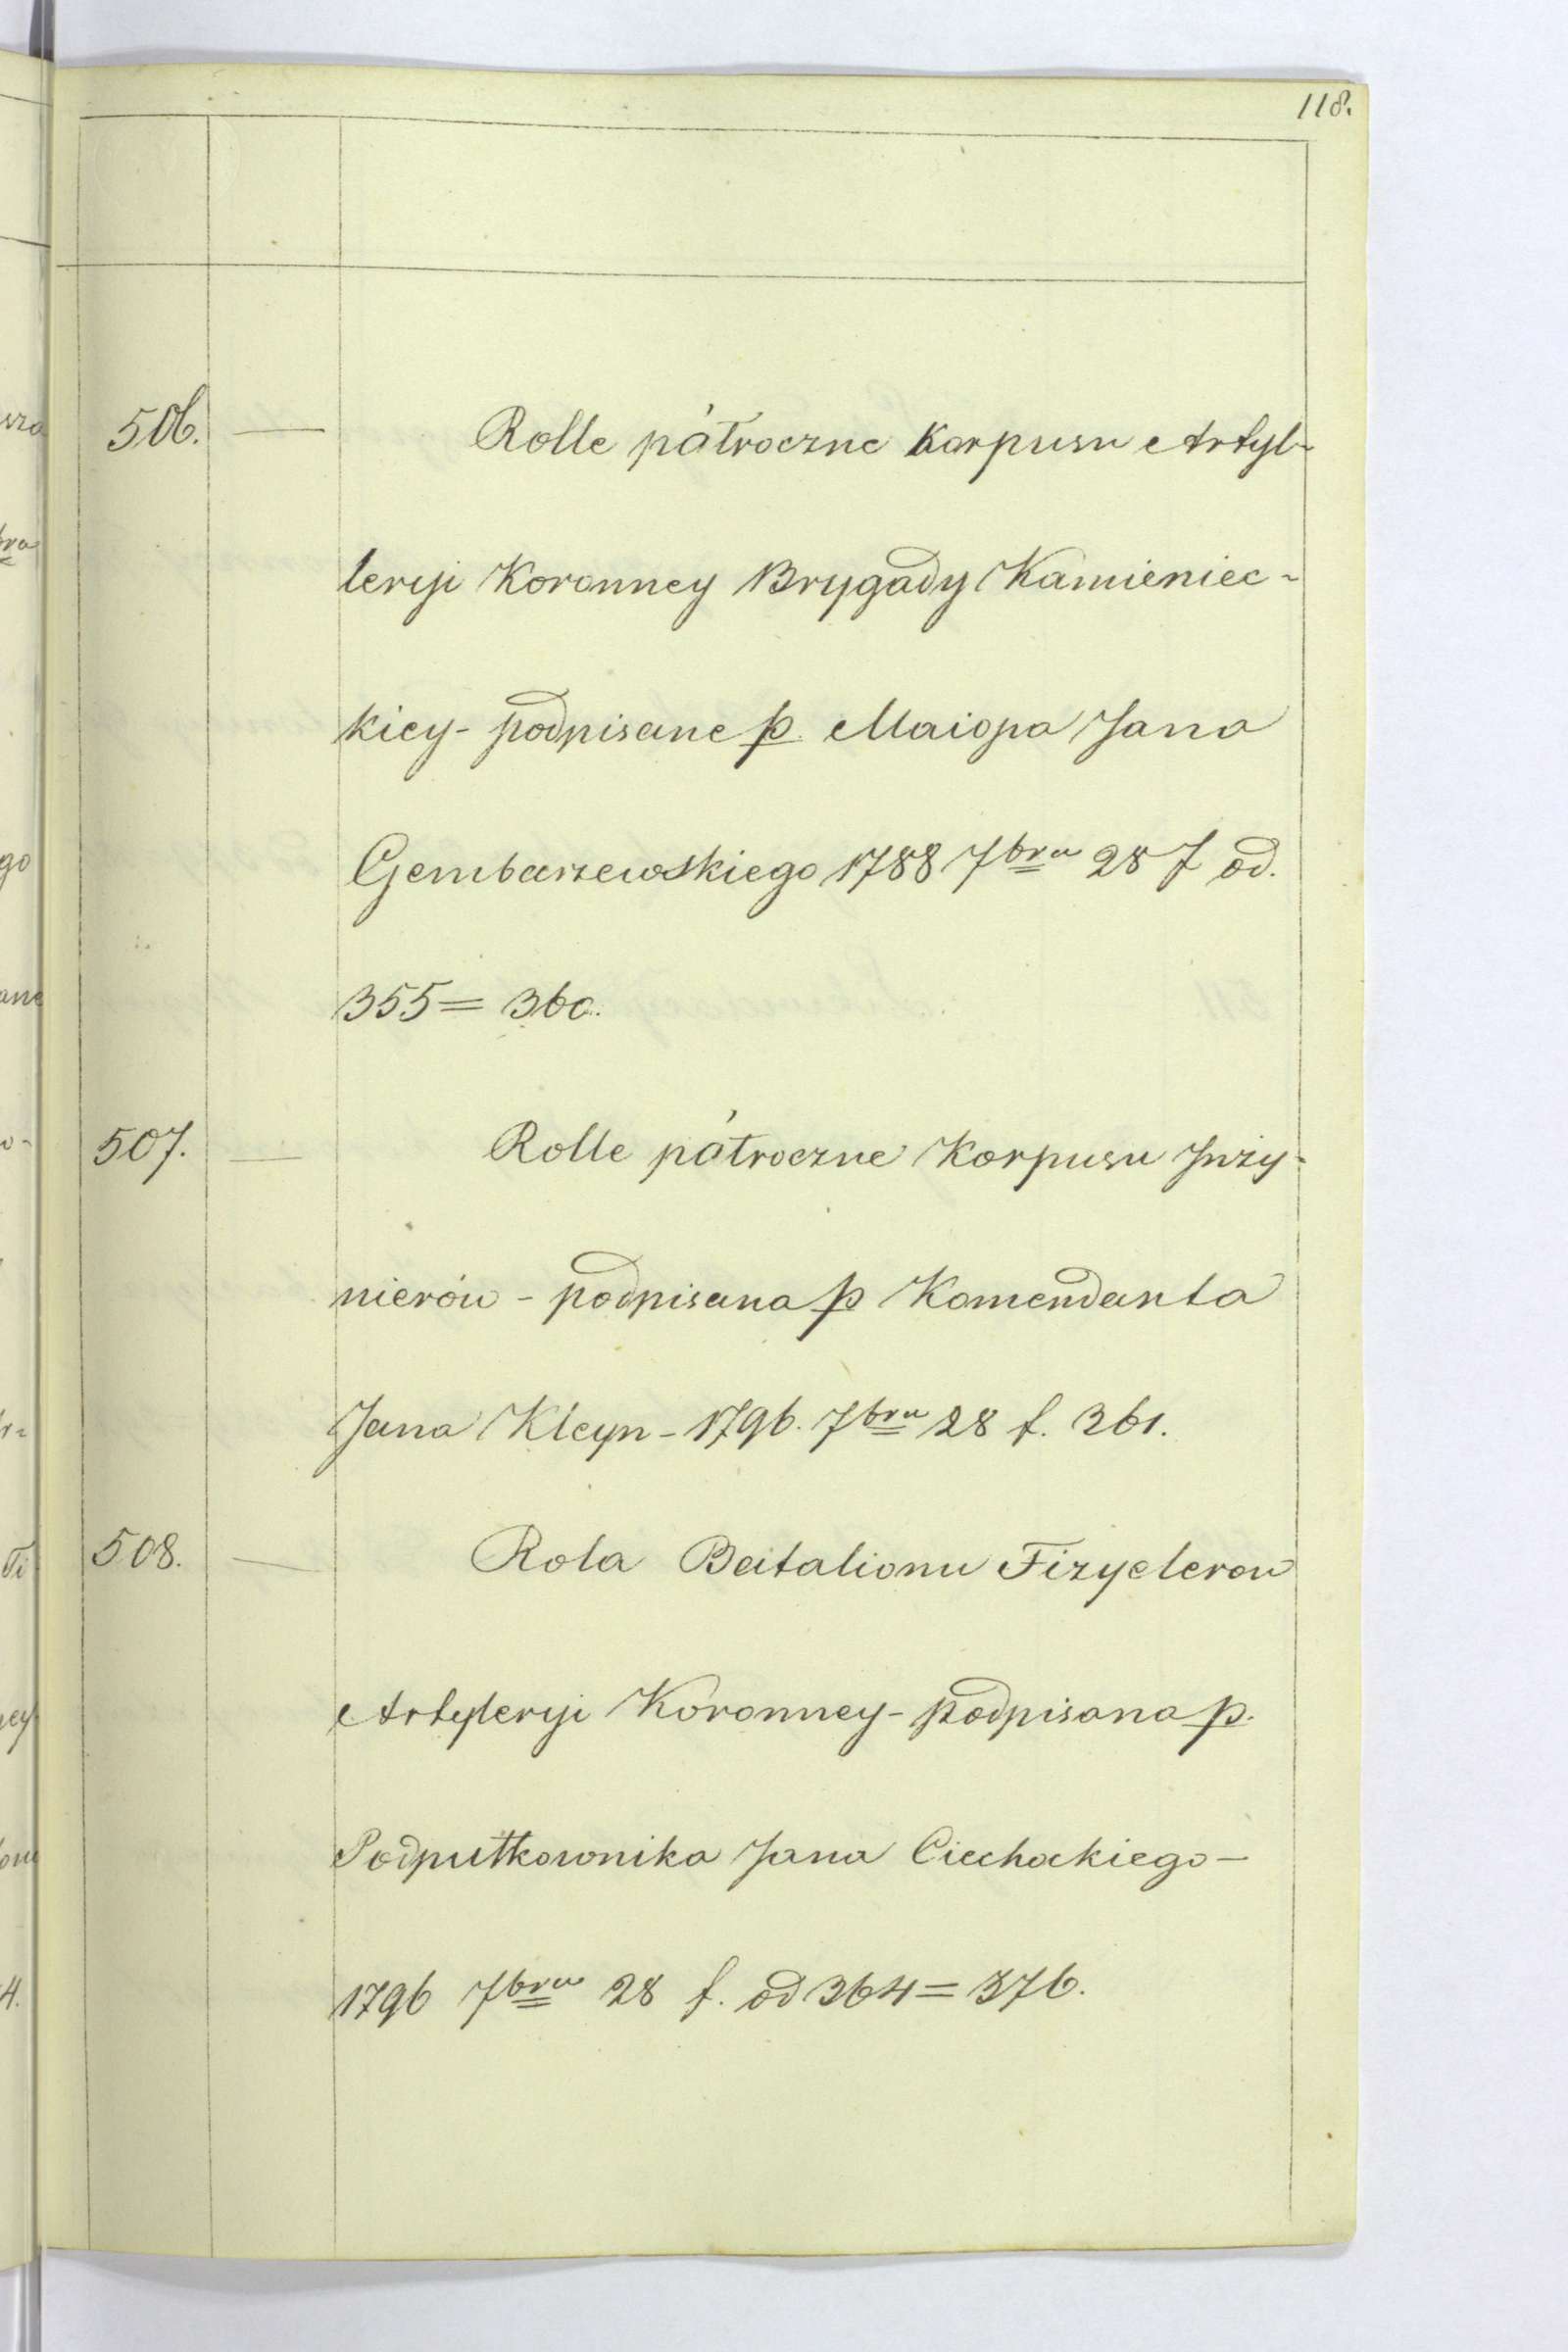 118.
506. — Rolle półroczne Korpusu Artyl-
leryi Koronney Brygady Kamieniec-
kiey - podpisane p. Maiora Jana
Gembarzewskiego 1788 7bra 28 f od.
355 = 360.
507. — Rolle półroczne Korpusu Inży-
nierów - podpisana p Komendanta
Jana Kleyn - 1796. 7bra 28 f. 361.
508. — Rola Batalionu Fizyelerow
Artyleryi Koronney - podpisana p.
Podpułkownika Jana Ciechockiego —
1796 7bra 28 f. od 364 = 376.